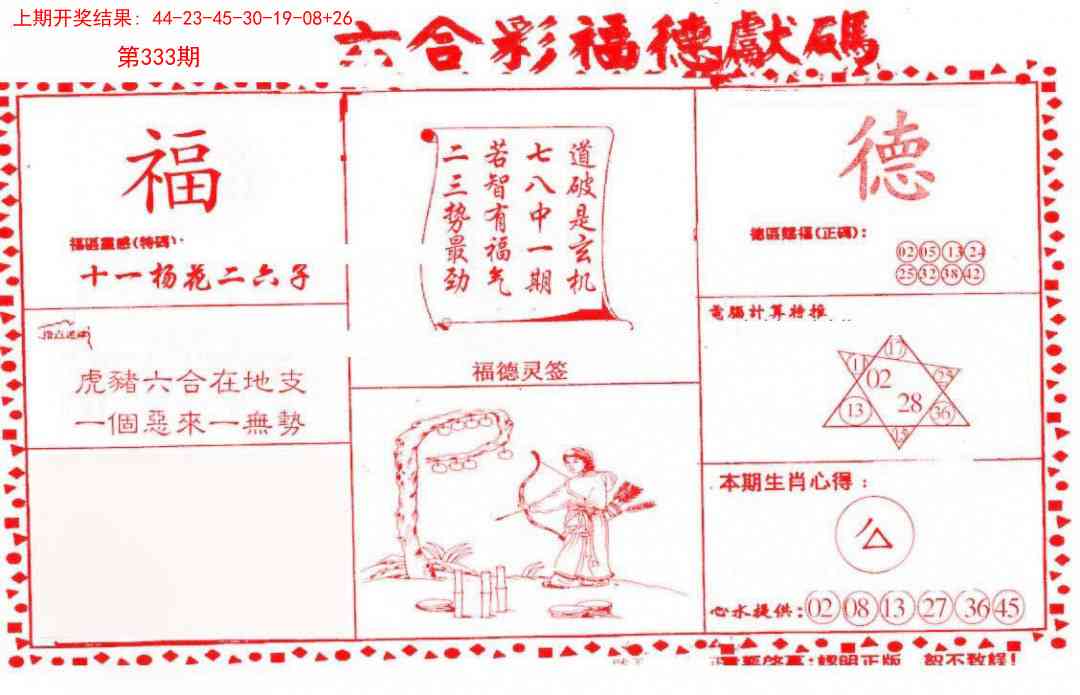 上期开奖结果: 44-23-45-30-19-08+26
第333期
六合彩福德獻碼
福
福區靈感(特碼):
十一杨花二六子
虎豬六合在地支
一個惡來一無勢
道破是玄机
七八中一期
若智有福气
二三势最劲
福德灵签
德
德區賜福(正碼):
02 05 13 24
25 32 38 42
電腦計算特推
17
11
02
25
13
28
36
15
本期生肖心得:
心水提供: 02 08 13 27 36 45